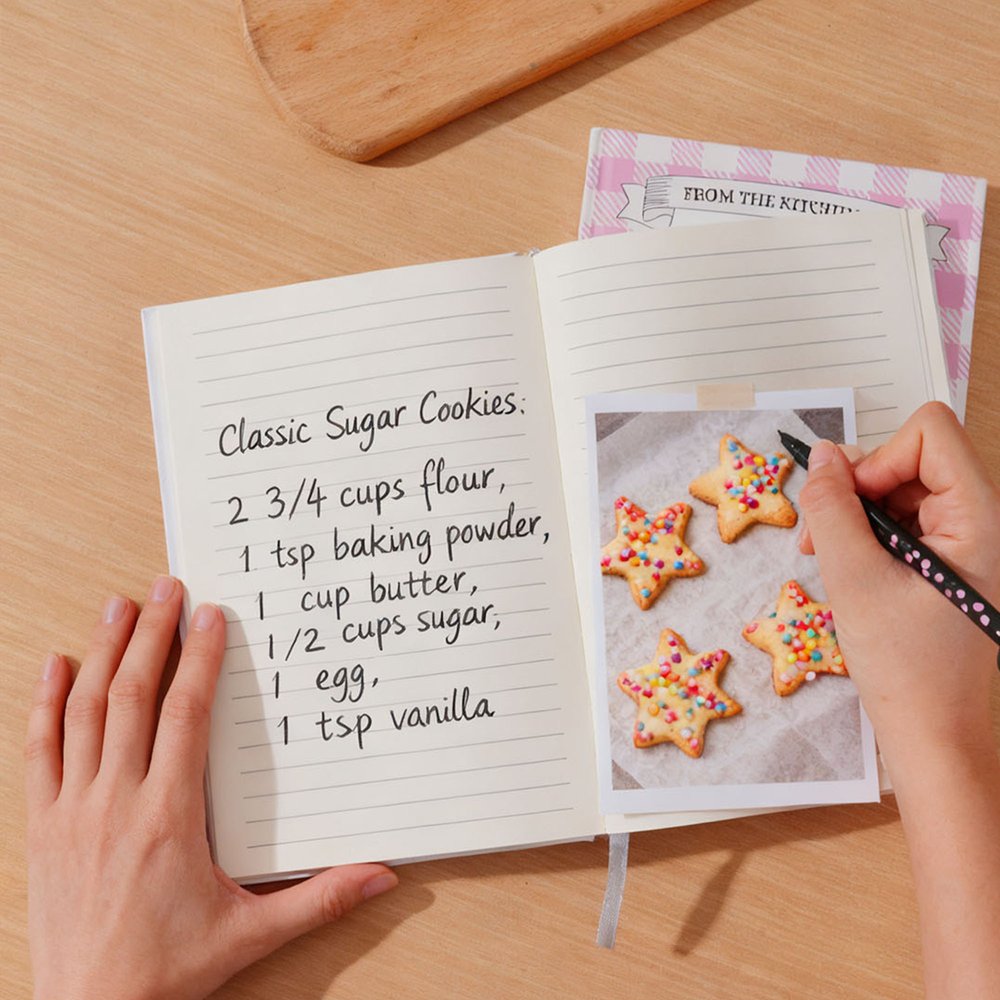 FROM THE
Classic Sugar Cookies:
2 3/4 cups flour,
1 tsp baking powder,
1 cup butter,
1/2 cups sugar,
1 egg,
1 tsp vanilla